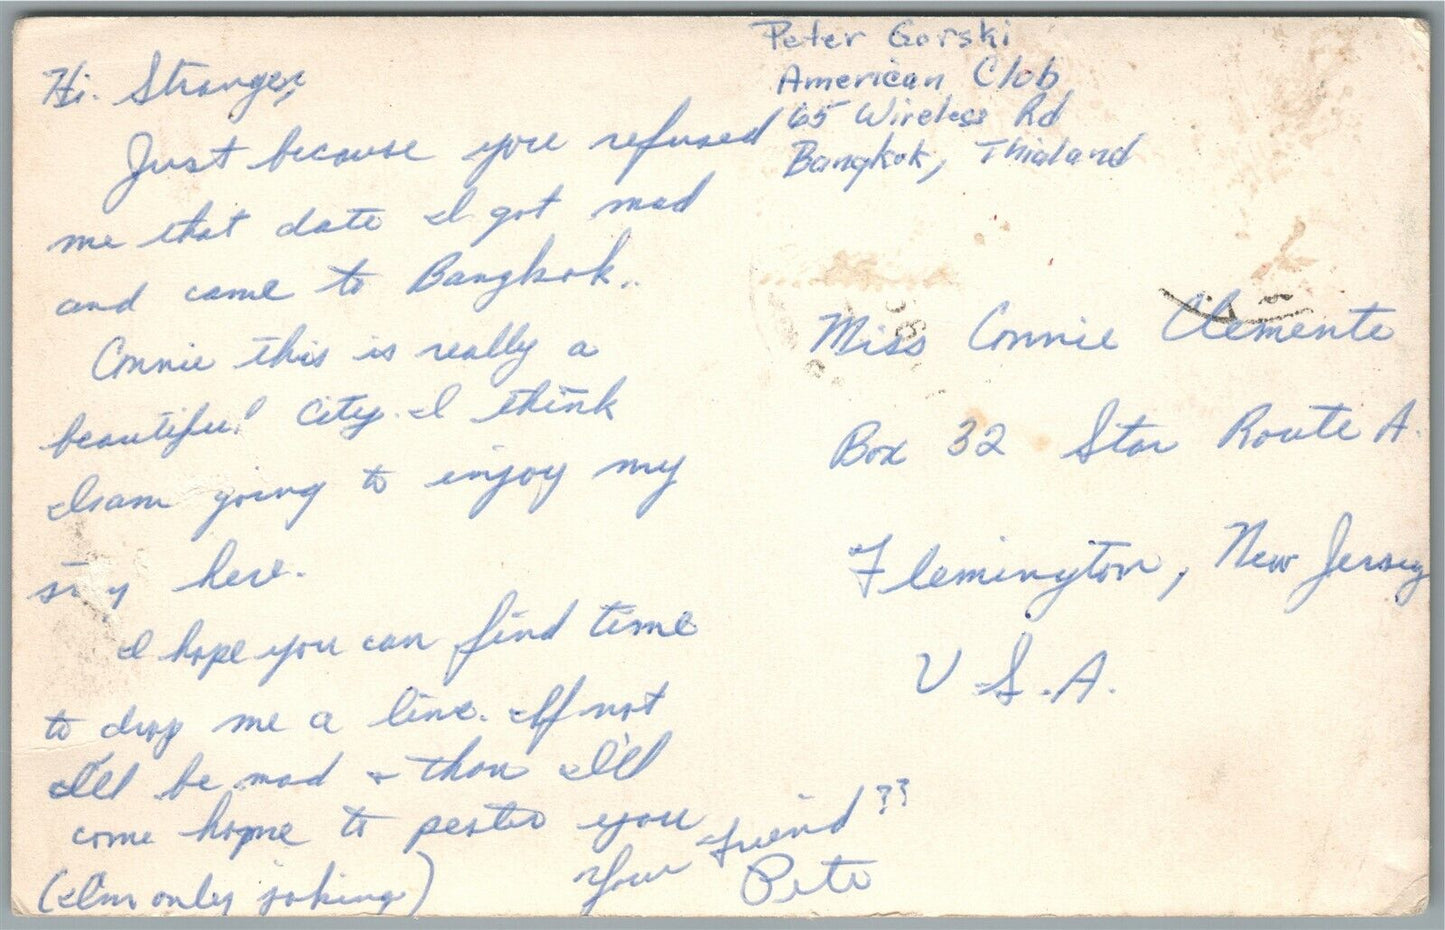 Hi. Stranger,
Just because you refused
me that date I got mad
and came to Bangkok..
Connie this is really a
beautiful City. I think
I am going to enjoy my
stay here.
I hope you can find time
to drop me a line. If not
I'll be mad + than I'll
come home to pester you
(I'm only joking)
Your friend??
Pete
Peter Gorski
American Club
65 Wireless Rd
Bangkok, Thialand
Miss Connie Clemente
Box 32 Star Route A.
Flemington, New Jersey
U.S.A.